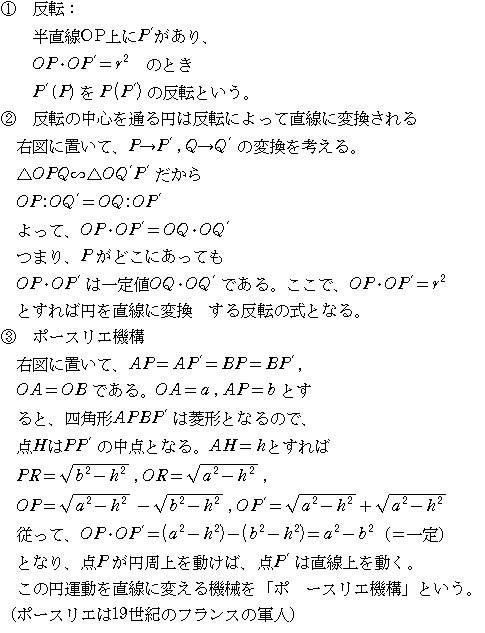 ① 反転：
半直線OP上にP′があり、
OP·OP′=r² のとき
P′(P)をP(P′)の反転という。
② 反転の中心を通る円は反転によって直線に変換される
右図に置いて、P→P′,Q→Q′の変換を考える。
△OPQ∽△OQ′P′だから
OP:OQ′=OQ:OP′
よって、OP·OP′=OQ·OQ′
つまり、Pがどこにあっても
OP·OP′は一定値OQ·OQ′である。ここで、OP·OP′=r²
とすれば円を直線に変換 する反転の式となる。
③ ポースリエ機構
右図に置いて、AP=AP′=BP=BP′,
OA=OBである。OA=a,AP=bとす
ると、四角形APBP′は菱形となるので、
点HはPP′の中点となる。AH=hとすれば
PR=√(b²−h²),OR=√(a²−h²),
OP=√(a²−h²)−√(b²−h²),OP′=√(a²−h²)+√(a²−h²)
従って、OP·OP′=(a²−h²)−(b²−h²)=a²−b²（=一定）
となり、点Pが円周上を動けば、点P′は直線上を動く。
この円運動を直線に変える機械を「ポ ースリエ機構」という。
（ポースリエは19世紀のフランスの軍人）